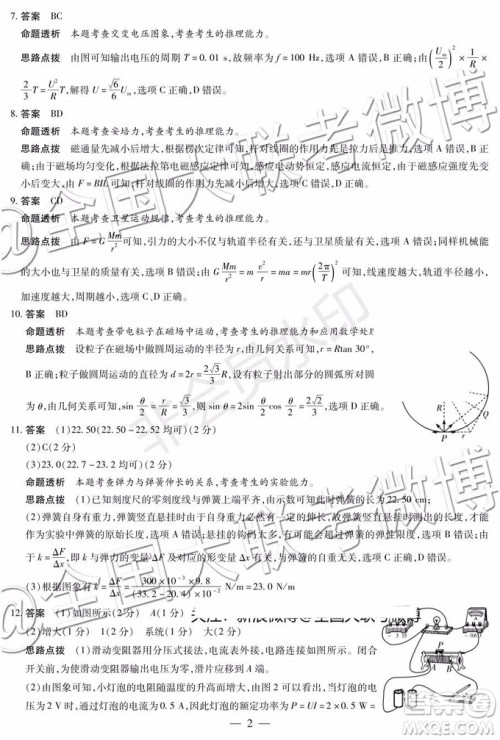 7. 答案 BC
命题透析 本题考查交变电压图象,考查考生的推理能力。
思路点拨 由图可知输出电压的周期 T=0.01 s,故频率为 f=100 Hz,选项 A 错误,B 正确;由(Um/2)²×1/R×
2/3 T=U²/R T,解得 U=√6/6 Um,选项 C 正确,D 错误。
8. 答案 BD
命题透析 本题考查安培力,考查考生的推理能力。
思路点拨 磁通量先减小后增大,由楞次定律可知,杆对线圈的作用力先是拉力后是推力,选项 A 错误,B 正
确;由于磁场均匀变化,根据法拉第电磁感应定律可知,感应电动势恒定,感应电流恒定,由于磁感应强度先变
小后变大,由 F=BIL 可知,杆对线圈的作用力先减小后增大,选项 C 错误,D 正确。
9. 答案 CD
命题透析 本题考查卫星运动规律,考查考生的推理能力。
思路点拨 由 F=G Mm/r² 可知,引力的大小不仅与轨道半径有关,还与卫星质量有关,选项 A 错误;同样机械能
的大小也与卫星的质量有关,选项 B 错误;由 G Mm/r²=m v²/r=ma=mr(2π/T)² 可知,线速度越大,轨道半径越小,
加速度越大,周期越小,选项 C、D 正确。
10. 答案 BD
命题透析 本题考查带电粒子在磁场中运动,考查考生的推理能力和应用数学处
思路点拨 设粒子在磁场中做圆周运动的半径为 r,由几何关系可知,r=Rtan 30°,
B 正确;粒子做圆周运动的直径为 d=2r=2√3/3 R,设有粒子射出部分的圆弧所对圆
为 θ,由几何关系可知,sin θ/2=r/R=√3/3,则 sin θ=2sin θ/2 cos θ/2=2√2/3,选项 D 正确。
11. 答案 (1)22.50(22.50~22.52 均可)(2 分)
(2)C(2 分)
(3)23.0(22.7~23.2 均可)(2 分)
命题透析 本题考查弹力与弹簧伸长的关系,考查考生的实验能力。
思路点拨 (1)已知刻度尺的零刻度线与弹簧上端平齐,由示数可知此时弹簧的长度为 22.50 cm;
(2)弹簧自身有重力,弹簧竖直悬挂时由于自身重力必然有一定的伸长,故弹簧竖直悬挂时测出的长度,才能
作为实验中弹簧的原始长度,选项 A 错误;悬挂的钩码太多,有可能会超过弹簧的弹性限度,选项 B 错误;由
于 k=ΔF/Δx,即 k 与弹力的变量 ΔF 及对应的形变量 Δx 有关,与弹簧的原长无关,选项 C 正确。
(3)根据图象有 k=ΔF/Δx=300×10⁻³×9.8/(33.2-20.4)×10⁻² N/m=23.0 N/m
12. 答案 (1)如图所示(2 分) A(1 分)
(2)增大(1 分) 1(2 分) 系统(1 分) 大(2 分)
思路点拨 (1)滑动变阻器用分压式接法,电流表外接,电路连接如图所示。闭合
开关前,为使滑动变阻器输出电压为零,滑片应移到 A 端。
(2)由图象可知,小灯泡的电阻随温度的升高而增大,由图象可知,当灯泡的电
压为 2 V 时,通过灯泡的电流为 0.5 A,因此灯泡的额定功率为 P=UI=2×0.5 W=
— 2 —
@全国大联考微博
@全国大联考微博
非会员水印